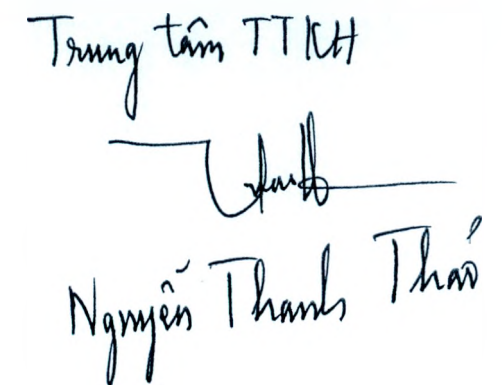 Trung tâm TTKH
Nguyễn Thanh Thảo